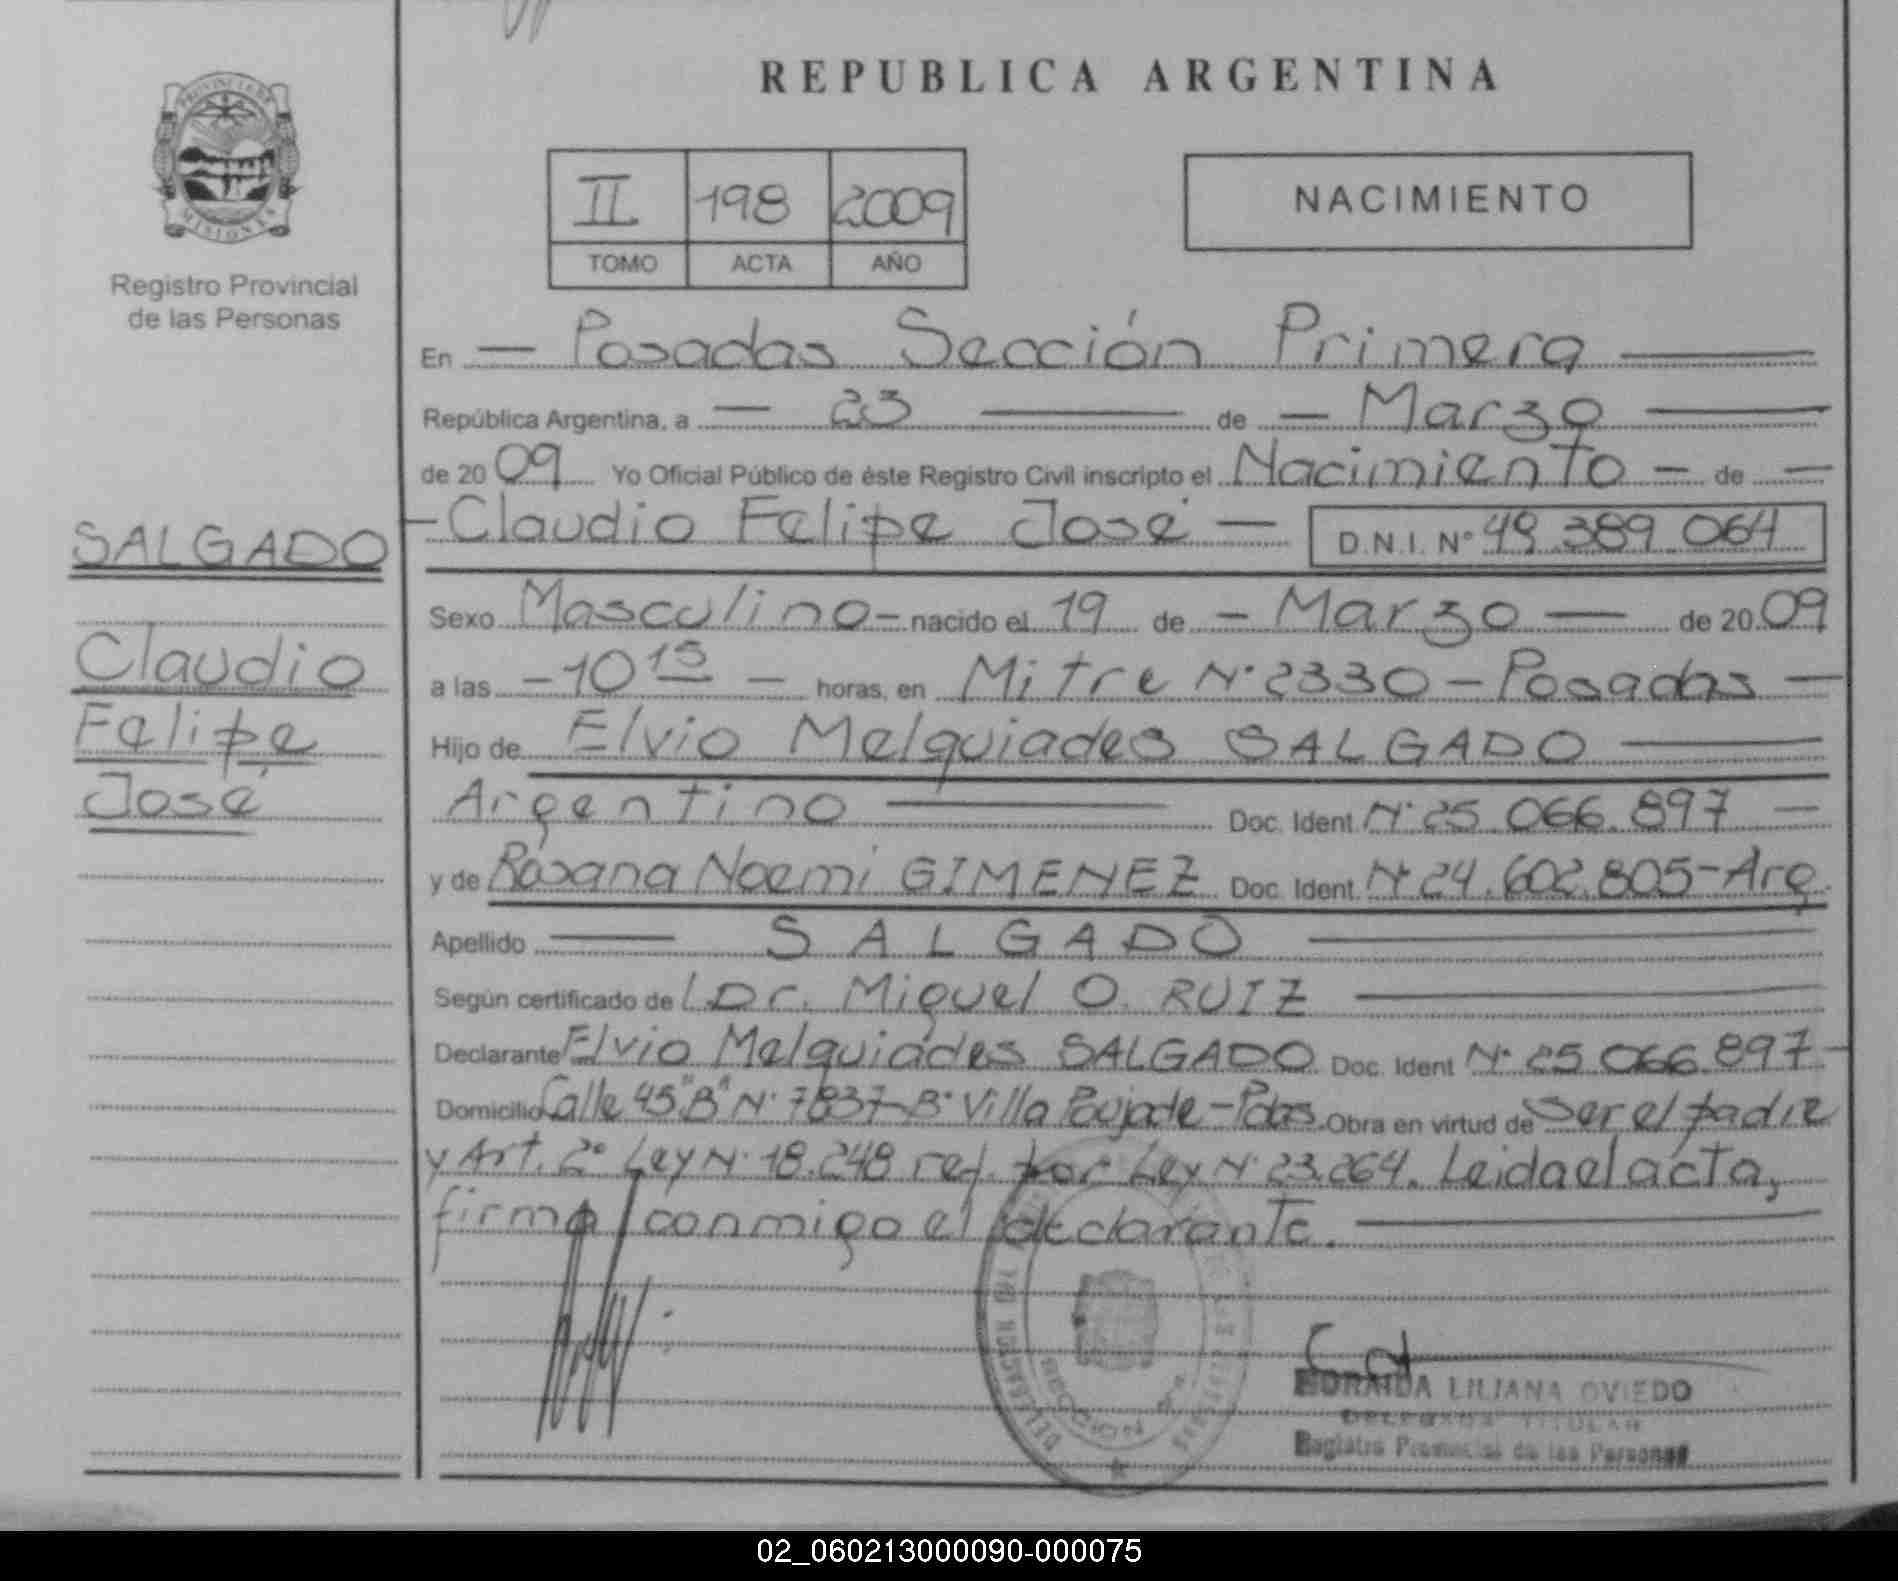 REPUBLICA ARGENTINA
PROVINCIA DE
MISIONES
Registro Provincial
de las Personas
II 198 2009
TOMO ACTA AÑO
NACIMIENTO
En — Posadas Sección Primera —
República Argentina, a — 23 — de — Marzo —
de 2009 Yo Oficial Público de éste Registro Civil inscripto el Nacimiento — de —
— Claudio Felipe José — D.N.I. Nº 49.389.064
SALGADO
Claudio
Felipe
José
Sexo Masculino — nacido el 19 de — Marzo — de 2009
a las — 10 15 — horas, en Mitre Nº 2330 — Posadas —
Hijo de Elvio Melquiades SALGADO —
Argentino — Doc. Ident. Nº 25.066.897 —
y de Rosana Noemi GIMENEZ Doc. Ident. Nº 24.602.805 - Arg.
Apellido — SALGADO —
Según certificado del Dr. Miguel O. RUIZ —
Declarante Elvio Melquiades SALGADO Doc. Ident Nº 25.066.897 —
Domicilio Calle 45 "B" Nº 7837 - Bº Villa Poujade - Pdas. Obra en virtud de ser el padre
y Art. 2º Ley Nº 18.248 ref. por Ley Nº 23.264. Leida el acta,
firma conmigo el declarante. —
MORAIDA LILIANA OVIEDO
DELEGADA TITULAR
Registro Provincial de las Personas
02_060213000090-000075